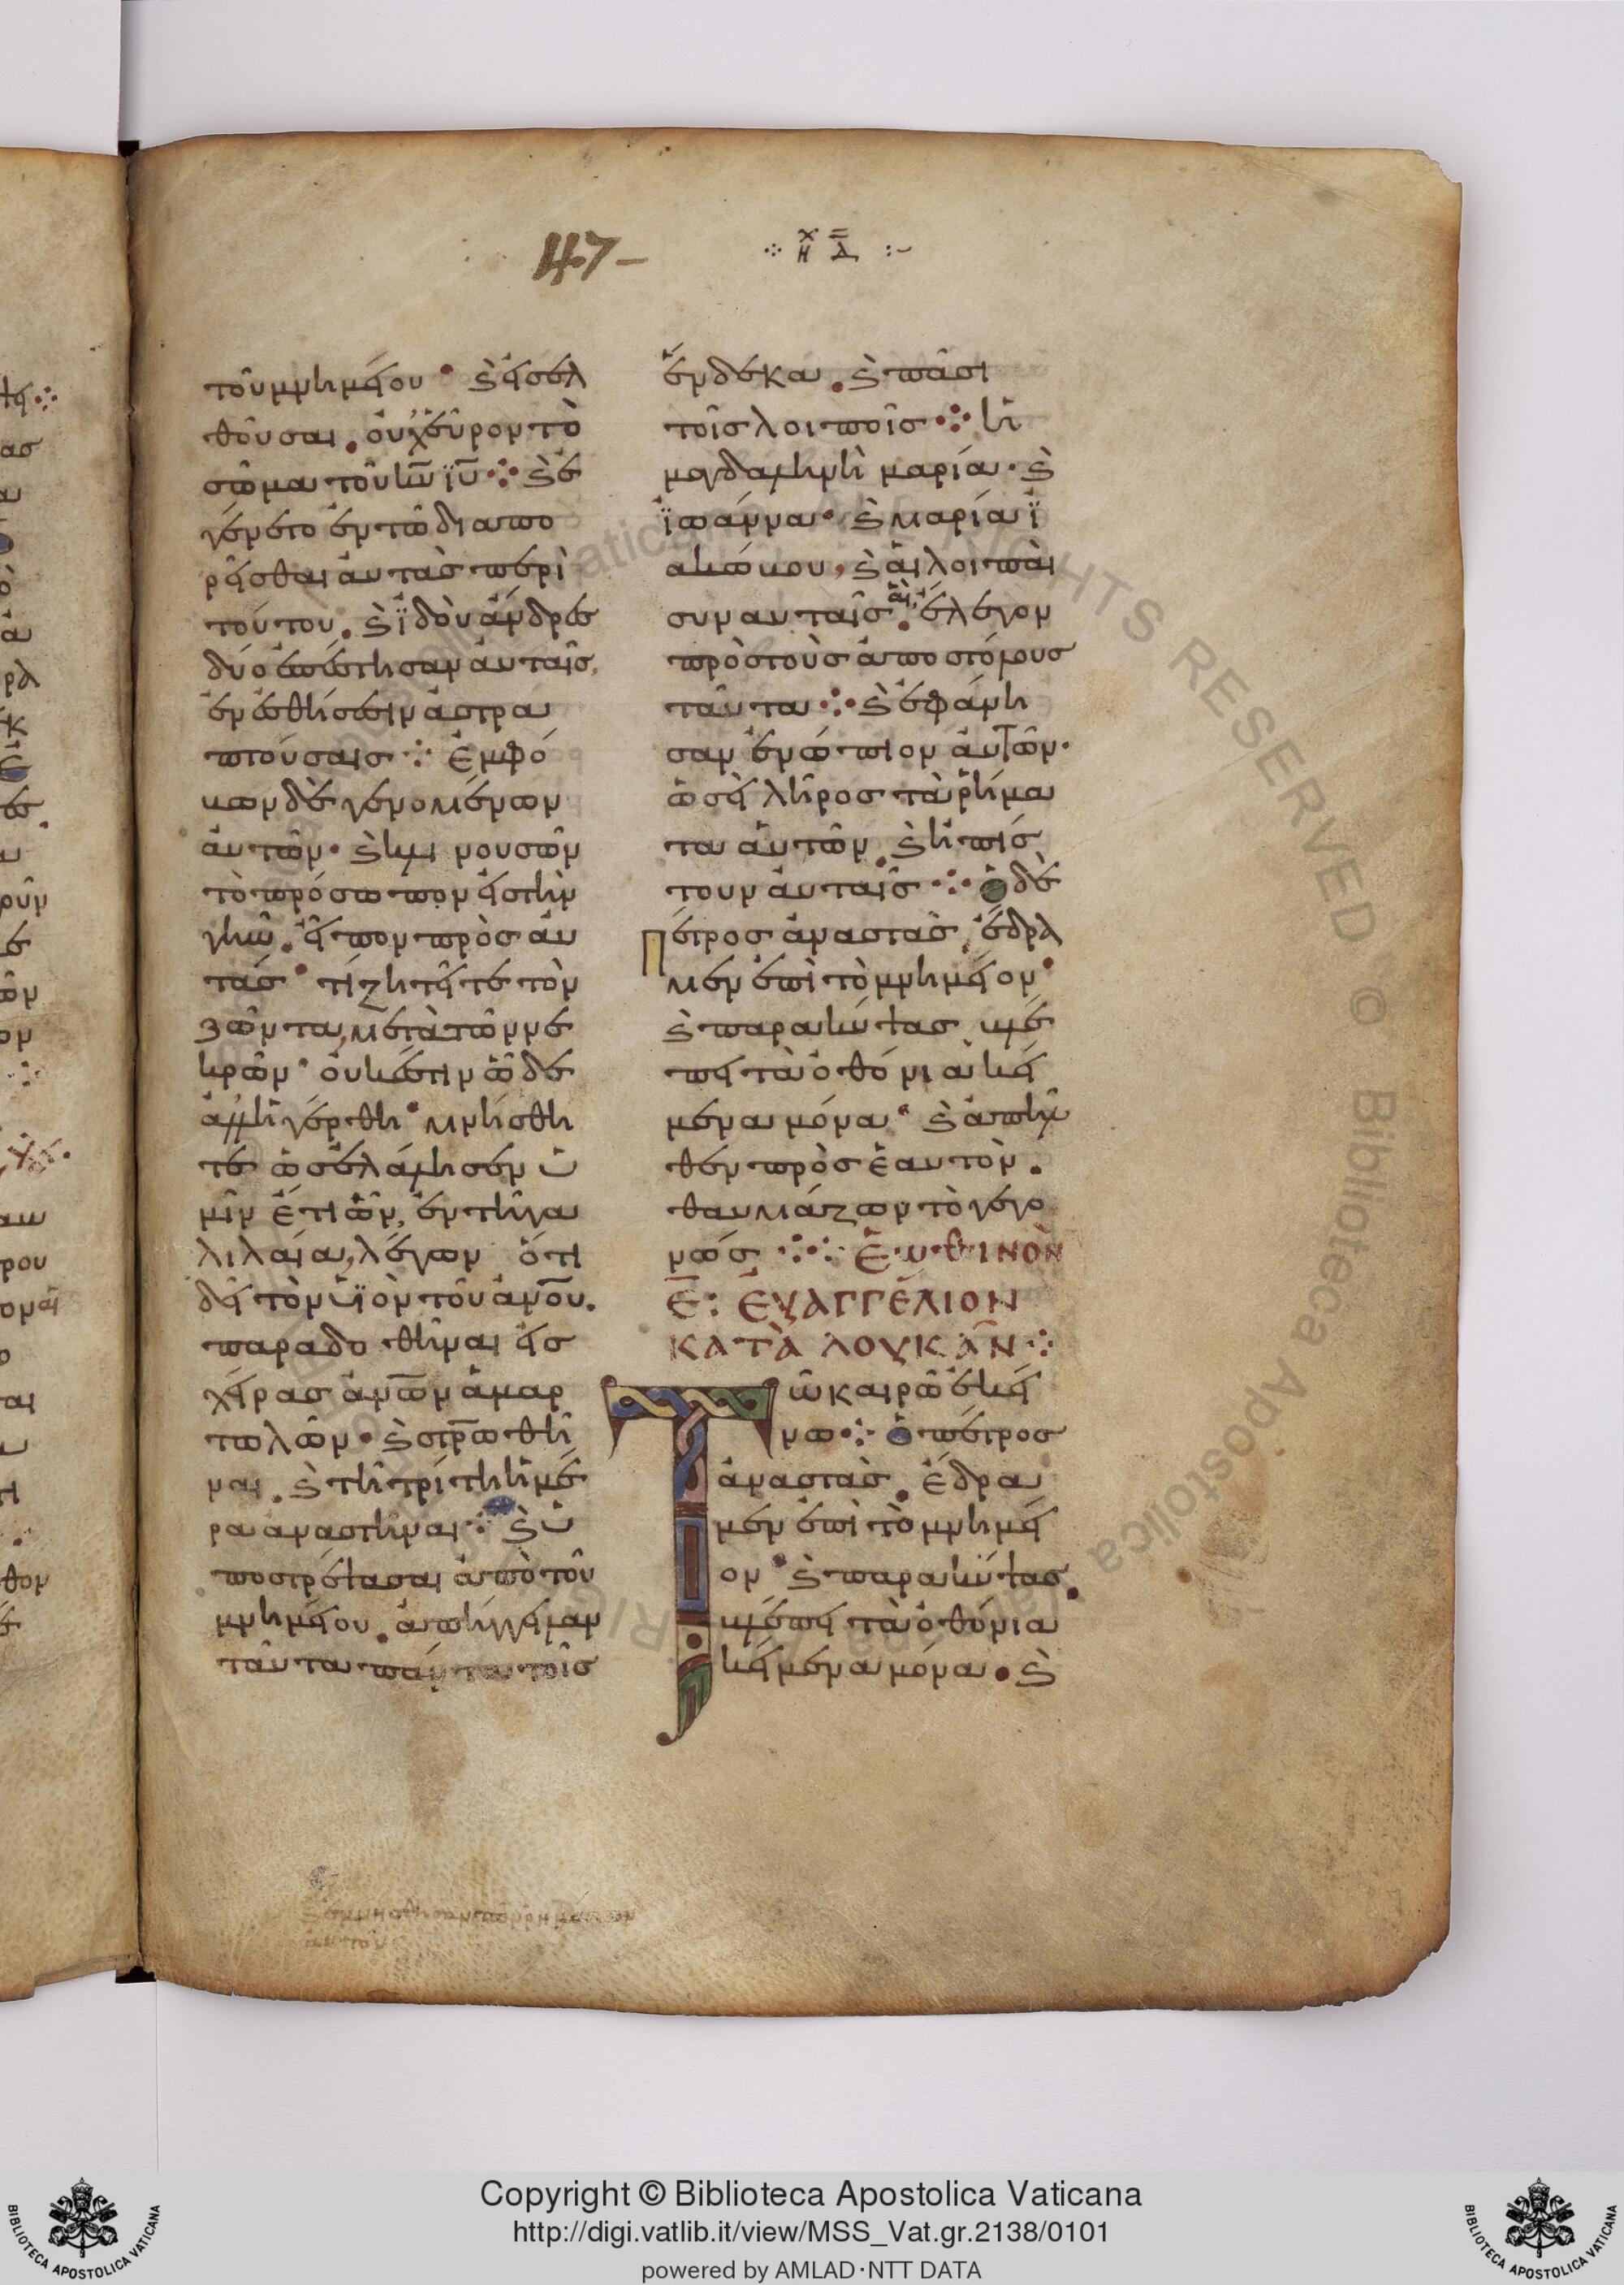 47-
τοῦ μνημείου · ϗ εἰσελ
θοῦσαι . οὐχ εὗρον τὸ
σῶμα τοῦ κ̅υ̅ ἰ̅υ̅ ⁘ ϗ ἐ
γένετο ἐν τῶ διαπο
ρεῖσθαι ἀυτὰσ περὶ
τούτου . ϗ ἰδοὺ ἄνδρεσ
δύο ἐπέστησαν ἀυταῖσ,
ἐν ἐσθήσεσιν ἀστρα
πτούσαισ ⁘ Ἐμφό
βων δὲ γενομένων
ἀυτῶν · ϗ κλινουσῶν
τὸ πρόσωπον εἰσ τὴν
γῆν . εἶπον πρὸσ ἀυ
τάσ · τί ζητεῖτε τὸν
ζῶντα, μετὰ τῶν νε
κρῶν · οὐκ ἔστιν ὧδε
ἀλλ' ἠγέρθη · μνήσθη
τε ὡσ ἐλάλησεν ὑ
μῖν ἔτι ὢν, ἐν τῆ γα
λιλαία, λέγων ὅτι
δεῖ τὸν ὑϊὸν τοῦ ἀν̅ο̅υ̅.
παραδοθῆναι εἰσ
χεῖρασ ἀν̅ω̅ν ἁμαρ
τωλῶν · ϗ στ̅ρ̅ωθῆ
ναι . ϗ τῆ τρίτη ἡμέ
ρα ἀναστῆναι ⁘ ϗ ὑ
ποστρέψασαι ἀπὸ τοῦ
μνημείου . ἀπήγγειλαν
ταῦτα πάντα τοῖσ
ἕνδεκα . ϗ πᾶσι
τοῖσ λοιποῖσ ⁘ ἡ
μαγδαληνὴ μαρία · ϗ
ἰωάννα · ϗ μαρία ἰ
ακώβου, ϗ αἱ λοιπαὶ
συν αυταῖσ . αἳ ἔλεγον
πρὸσ τοὺσ ἀποστόλουσ
ταῦτα ⁘ ϗ ἐφάνη
σαν ἐνώπιον ἀυτῶν ·
ὡσεὶ λῆροσ τὰ ῥήμα
τα ἀυτῶν . ϗ ἠπίσ
τουν ἀυταῖσ ⁘ ὁ δὲ
Πέτροσ ἀναστὰσ, ἔδρα
μεν ἐπὶ τὸ μνημεῖον ·
ϗ παρακύψασ βλέ
πει τὰ ὀθόνια κεί
μενα μόνα · ϗ ἀπῆλ
θεν πρὸσ ἑαυτὸν .
θαυμάζων τὸ γεγο
νώσ ⁘⁘ Ἑωθινὸν
Ε̅ : Ἐυαγγέλιον
κατὰ Λουκᾶν ⁘
Τῶ καιρῶ ἐκεί
νω ⁘ ὁ πέτροσ
ἀναστὰσ . ἔδρα
μεν ἐπὶ τὸ μνημεῖ
ον · ϗ παρακύψασ .
βλέπει τὰ ὀθόνια
κείμενα μόνα . ϗ
Copyright © Biblioteca Apostolica Vaticana
http://digi.vatlib.it/view/MSS_Vat.gr.2138/0101
powered by AMLAD·NTT DATA